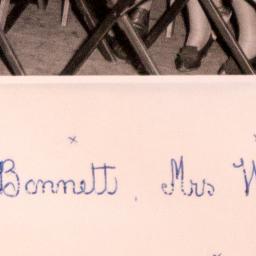 Bonnett, Mrs W